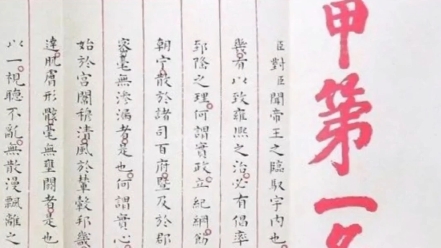 甲第一
臣對臣聞帝王之臨馭宇內也
有以致雍熙之治必有倡率
郅隆之理何謂實政立紀綱飭
朝宁散於諸司百府暨及於郡
密毫無滲漏者是也何謂實心
始於宮闈穆清風於輦轂邦畿
達肌膚形骸毫無壅閼者是也
以一視聽不亂無散漫飄離之